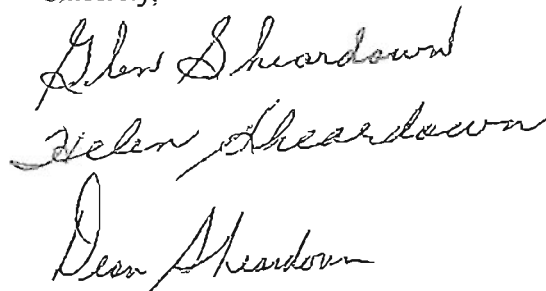 Sincerely,
Glen Sheardown
Helen Sheardown
Dean Sheardown